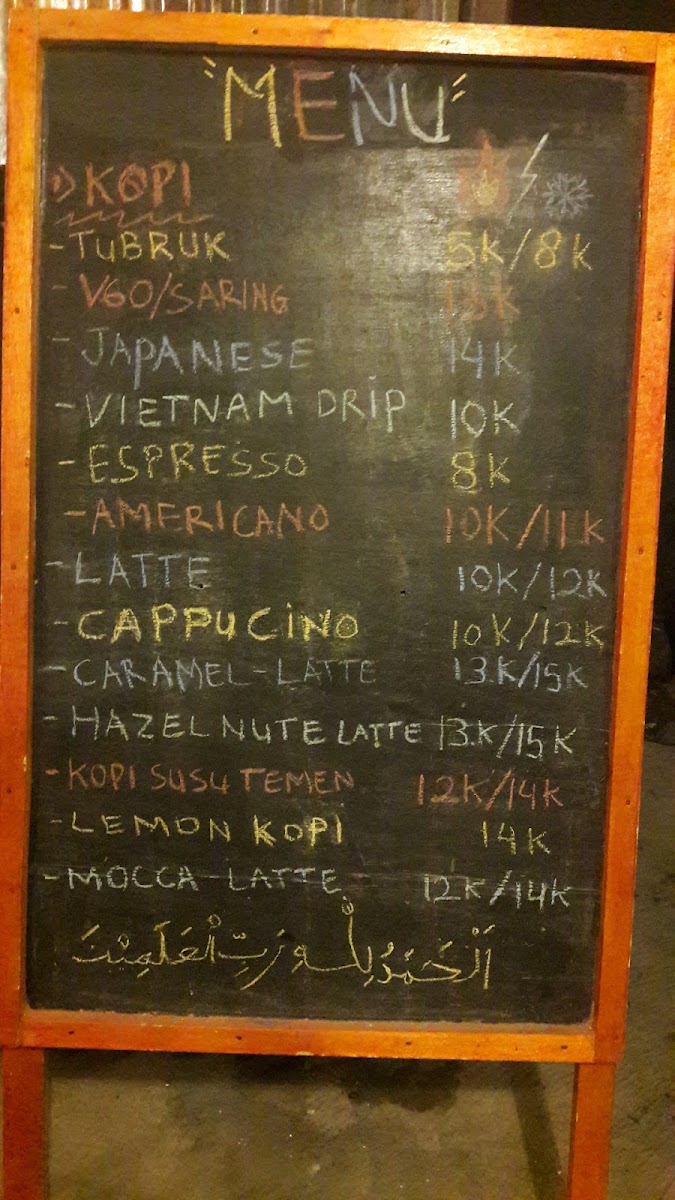 MENU
KOPI
- TUBRUK 5K/8K
- V60/SARING 13K
- JAPANESE 14K
- VIETNAM DRIP 10K
- ESPRESSO 8K
- AMERICANO 10K/11K
- LATTE 10K/12K
- CAPPUCINO 10K/12K
- CARAMEL-LATTE 13K/15K
- HAZELNUTE LATTE 13.K/15K
- KOPI SUSU TEMEN 12K/14K
- LEMON KOPI 14K
- MOCCA LATTE 12K/14K
اَلْحَمْدُ لِلّٰهِ رَبِّ الْعٰلَمِيْنَ